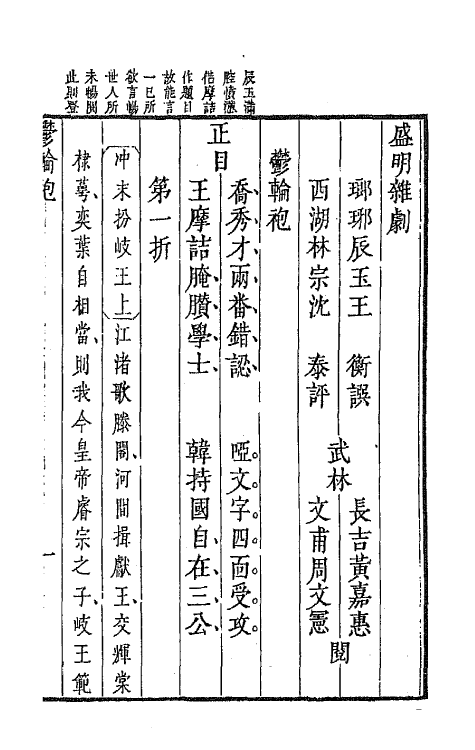 盛明雜劇
瑯琊辰玉王　衡譔
西湖林宗沈　泰評
武林
長吉黃嘉惠
文甫周文憲
閱
鬱輪袍
正目
喬秀才兩番錯認　啞文字四面受攻
王摩詰腌臢學士　韓持國自在三公
第一折
冲末扮岐王上江渚歌滕閣河間揖獻王交輝棠
棣萼奕葉自相當則我今皇帝睿宗之子岐王範
辰玉滿
腔憤懣
借摩詰
作題目
故能言
一己所
欲言暢
世人所
未暢閱
此則登
鬱輪袍
一